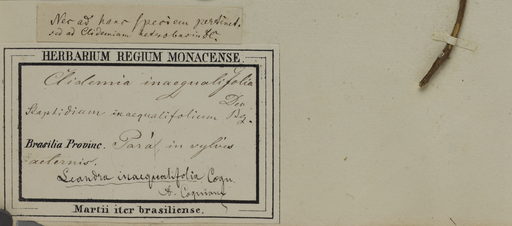 Nec ad hanc speciem pertinet
sed ad Clidemiam heterobasin DC.
HERBARIUM REGIUM MONACENSE.
Clidemia inaequalifolia
Staphidium inaequalifolium
Brasilia Provinc. Pará, in sylvis
aeternis.
Leandra inaequalifolia Cogn.
A. Cogniaux
Martii iter brasiliense.